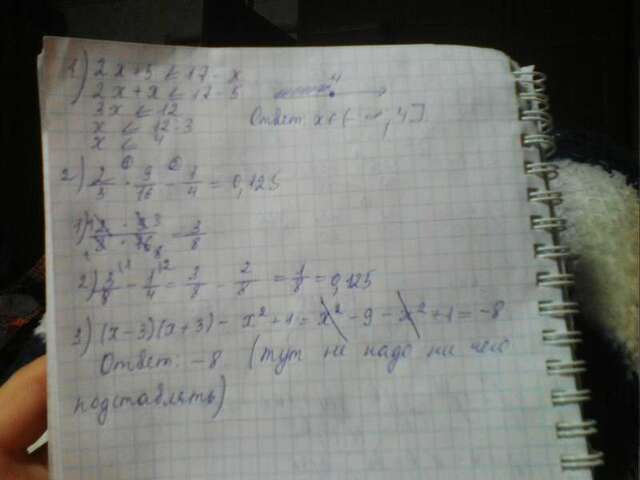 1) 2x+5 < 17-x
2x+x < 17-5
3x < 12
x < 12:3
x < 4
4
Ответ: x∈(-∞; 4]
2) 2/3 · 9/16 - 1/4 = 0,125
2) 3/8 - 1/4 = 3/8 - 2/8 = 1/8 = 0,125
3) (x-3)(x+3) - x²+1 = x²-9-x²+1 = -8
Ответ: -8 (тут не надо ни чего
подставлять)